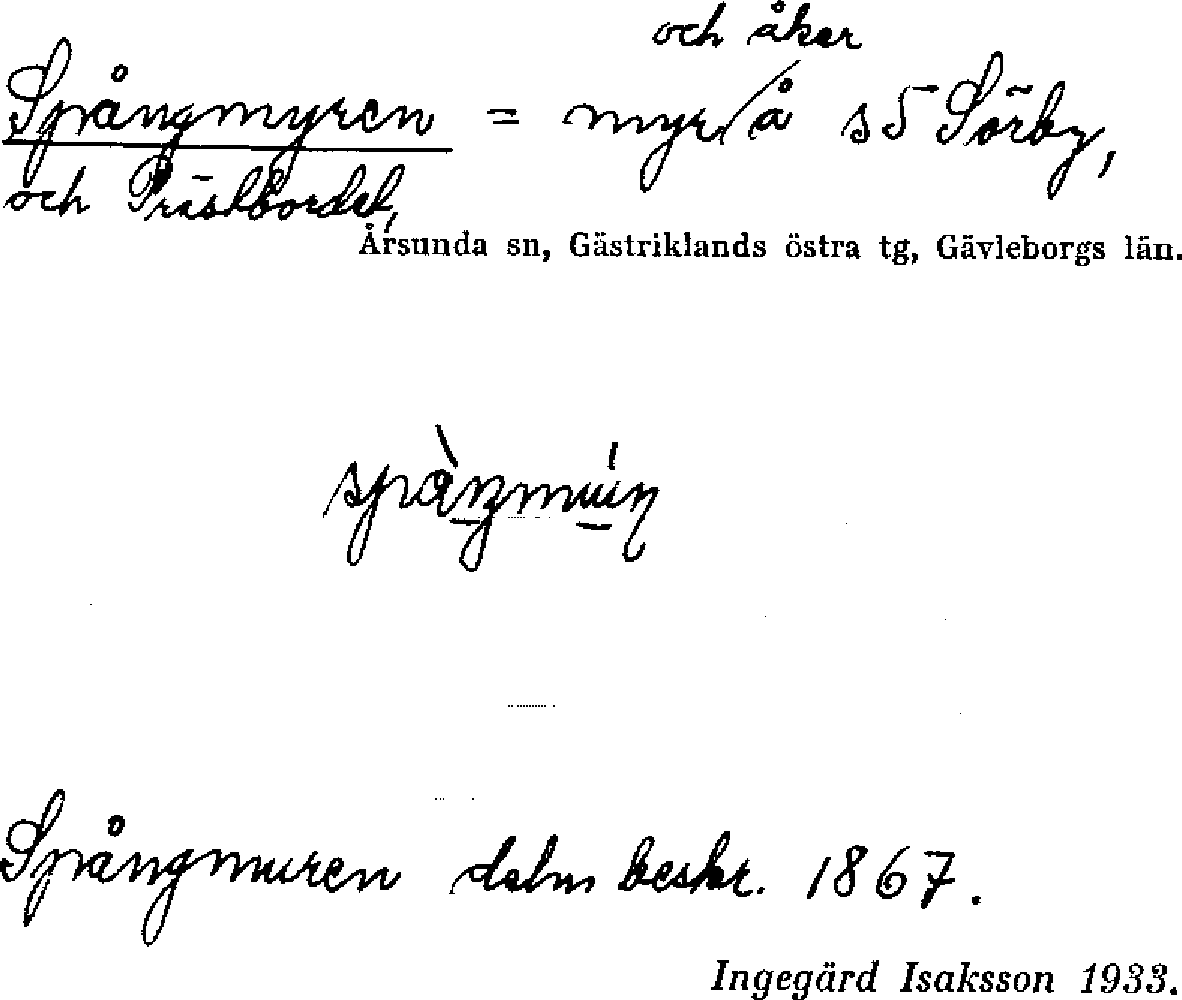 och åker
Spångmyren = myr/å s5 Sörby,
och Prästbordet,
Årsunda sn, Gästriklands östra tg, Gävleborgs län.
Spångmuren delm beskr. 1867.
Ingegärd Isaksson 1933.